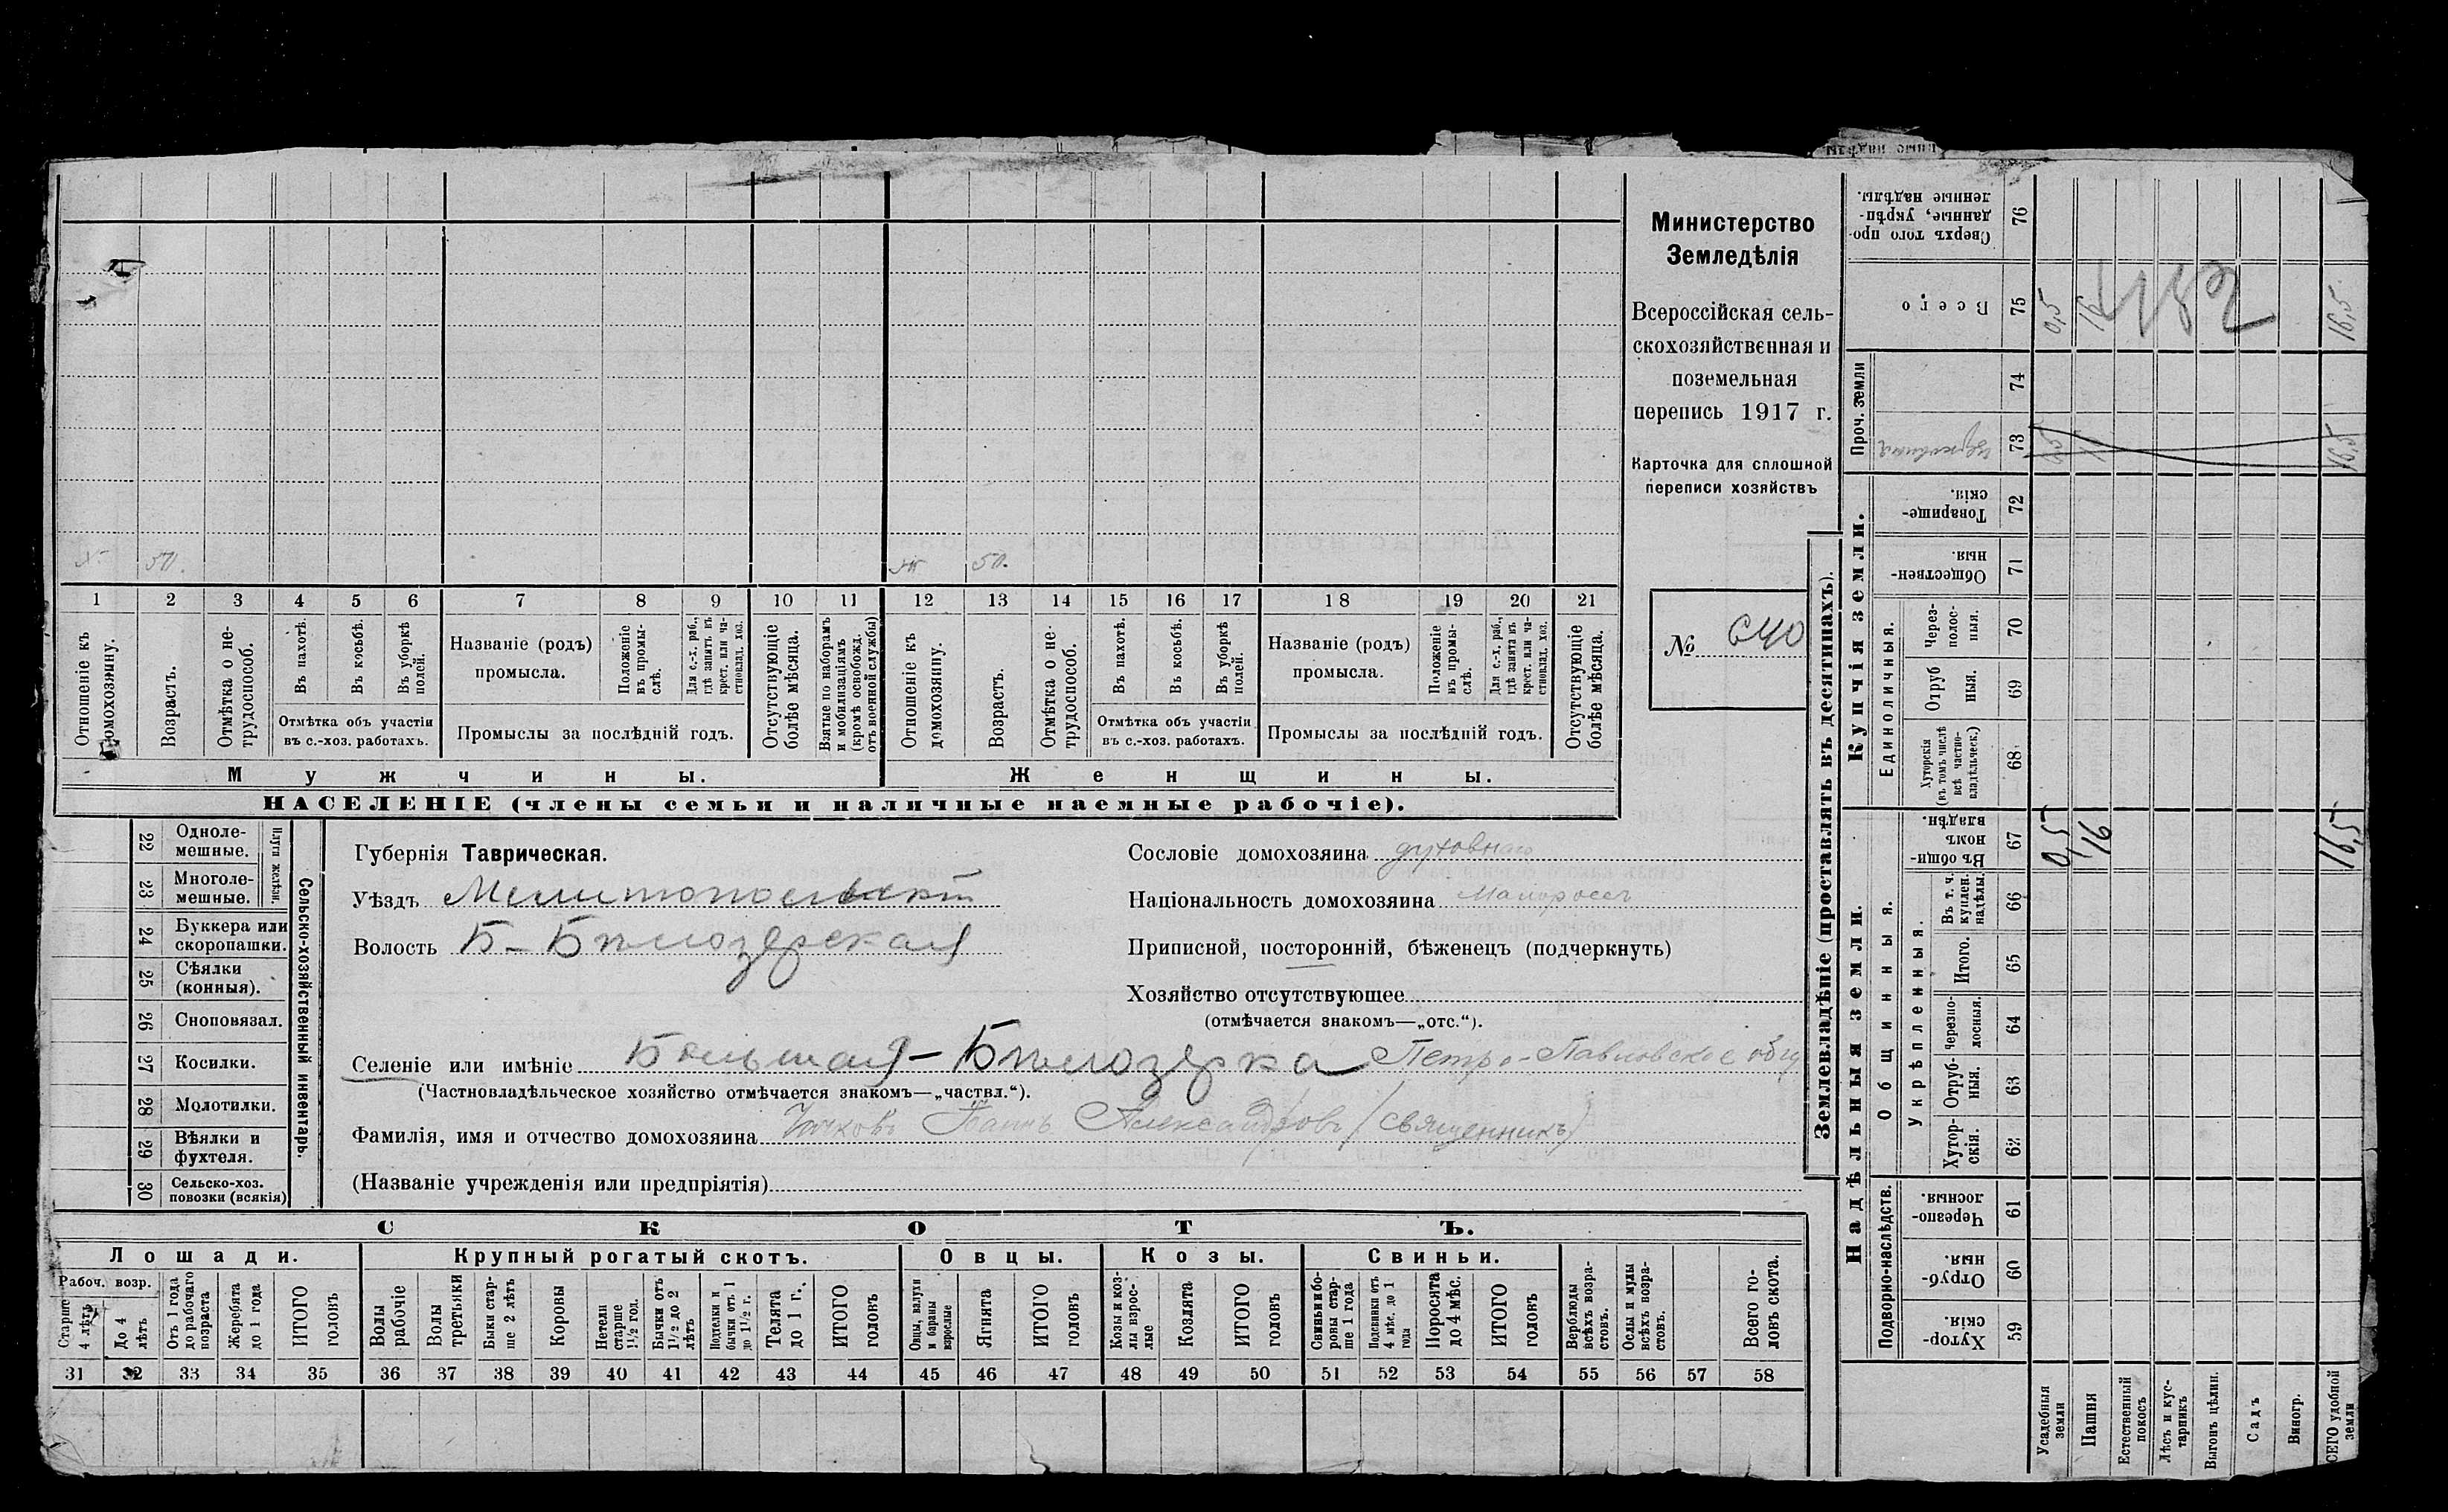 Министерство
Земледѣлія
Всероссійская сель-
скохозяйственная и
поземельная
перепись 1917 г.
Карточка для сплошной
переписи хозяйствъ
№ 640
х. 50. ж 50.
1 2 3 4 5 6 7 8 9 10 11 12 13 14 15 16 17 18 19 20 21
Отношеніе къ домохозяину.
Возрастъ.
Отмѣтка о не-трудоспособ.
Въ пахотѣ.
Въ косьбѣ.
Въ уборкѣ полей.
Отмѣтка объ участіи
въ с.-хоз. работахъ.
Названіе (родъ)
промысла.
Положеніе въ промы-слѣ.
Для с.-х. раб., гдѣ занятъ въ крест. или ча-стновлад. хоз.
Промыслы за послѣдній годъ.
Отсутствующіе болѣе мѣсяца.
Взятые по наборамъ и мобилизаціямъ (кромѣ освобожд. отъ военной службы)
Отношеніе къ домохозяину.
Возрастъ.
Отмѣтка о не-трудоспособ.
Въ пахотѣ.
Въ косьбѣ.
Въ уборкѣ полей.
Отмѣтка объ участіи
въ с.-хоз. работахъ.
Названіе (родъ)
промысла.
Положеніе въ промы-слѣ.
Для с.-х. раб., гдѣ занята въ крест. или ча-стновлад. хоз.
Промыслы за послѣдній годъ.
Отсутствующіе болѣе мѣсяца.
Мужчины. Женщины.
НАСЕЛЕНІЕ (члены семьи и наличные наемные рабочіе).
22 Одноле-мешные.
23 Многоле-мешные.
Плуги желѣзн.
24 Буккера или скоропашки.
25 Сѣялки (конныя).
26 Сноповязал.
27 Косилки.
28 Молотилки.
29 Вѣялки и фухтеля.
30 Сельско-хоз. повозки (всякія)
Сельско-хозяйственный инвентарь.
Губернія Таврическая.
Уѣздъ Мелитопольскій
Волость Б-Бѣлозерская
Сословіе домохозяина духовнаго
Національность домохозяина Малороссъ
Приписной, посторонній, бѣженецъ (подчеркнуть)
Хозяйство отсутствующее
(отмѣчается знакомъ—„отс.“).
Селеніе или имѣніе Большая-Бѣлозерка Петро-Павловское общ
(Частновладѣльческое хозяйство отмѣчается знакомъ—„частвл.“).
Фамилія, имя и отчество домохозяина Александровъ (священникъ)
(Названіе учрежденія или предпріятія)
СКОТЪ.
Лошади. Крупный рогатый скотъ. Овцы. Козы. Свиньи.
Рабоч. возр.
Старше 4 лѣтъ
До 4 лѣтъ
Отъ 1 года до рабочаго возраста
Жеребята до 1 года
ИТОГО головъ
Волы рабочіе
Волы третьяки
Быки стар-ше 2 лѣтъ
Коровы
Нетели старше 1½ год.
Бычки отъ 1½ до 2 лѣтъ
Подтелки и бычки отъ 1 до 1½ г.
Телята до 1 г.
ИТОГО головъ
Овцы, валухи и бараны взрослые
Ягнята
ИТОГО головъ
Козы и коз-лы взрос-лые
Козлята
ИТОГО головъ
Свиньи и бо-ровы стар-ше 1 года
Подсвинки отъ 4 мѣс. до 1 года
Поросята до 4 мѣс.
ИТОГО головъ
Верблюды всѣхъ возра-стовъ.
Ослы и мулы всѣхъ возра-стовъ.
Всего го-ловъ скота.
31 32 33 34 35 36 37 38 39 40 41 42 43 44 45 46 47 48 49 50 51 52 53 54 55 56 57 58
Землевладѣніе (проставлять въ десятинахъ).
Надѣльныя земли. Купчія земли. Проч. земли
Подворно-наслѣдств.
Общинныя.
Укрѣпленныя.
Единоличныя.
Сверхъ того про-данные, укрѣп-ленные надѣлы. 76
Всего 75 0,5 16 16,5
482
74
церковная 73 0,5 16 16,5
Товарище-скія. 72
Обществен-ныя. 71
Через-полос-ныя. 70
Отруб ныя. 69
Хуторскія (въ томъ числѣ всѣ частно-владѣльческ.) 68
Въ общи-номъ владѣн. 67 0,5 16 16,5
Въ т. ч. куплен. надѣлы. 66
Итого. 65
Черезпо-лосныя. 64
Отруб-ныя. 63
Хутор-скія. 62
Черезпо-лосныя. 61
Отруб-ныя. 60
Хутор-скія. 59
Усадебныя земли
Пашня
Естественный покосъ
Лѣсъ и кус-тарникъ
Выгонъ цѣлин.
Садъ
Виногр.
ВСЕГО удобной земли